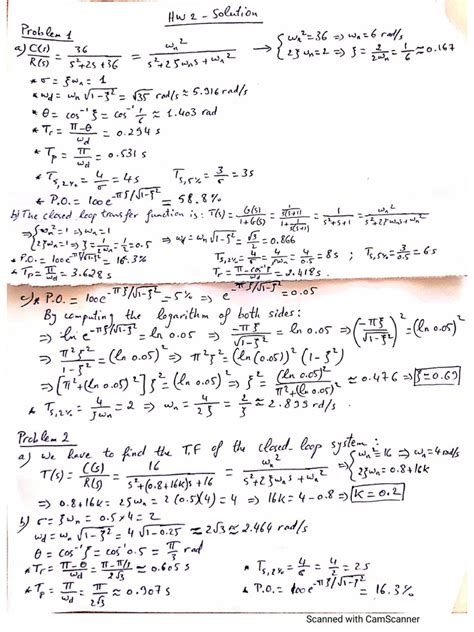 HW 2 - Solution
Problem 1
a) C(s)/R(s) = 36/(s²+2s+36) = ωn²/(s²+2ζωns+ωn²) → {ωn²=36 ⇒ ωn=6 rad/s
2ζωn=2 ⇒ ζ=2/(2ωn)=1/6≈0.167
* σ = ζωn = 1
* ωd = ωn√(1-ζ²) = √35 rad/s ≈ 5.916 rad/s
* θ = cos⁻¹ζ = cos⁻¹ 1/6 ≈ 1.403 rad
* Tr = (π-θ)/ωd = 0.294 s
* Tp = π/ωd = 0.531 s
* Ts,2% = 4/σ = 4s Ts,5% = 3/σ = 3s
* P.O. = 100e^(-πζ/√(1-ζ²)) = 58.8%
b) The closed loop transfer function is: T(s) = G(s)/(1+G(s)) = (1/(s(s+1)))/(1+1/(s(s+1))) = 1/(s²+s+1) = ωn²/(s²+2ζωns+ωn²)
⇒ {ωn²=1 ⇒ ωn=1
2ζωn=1 ⇒ ζ=1/(2ωn)=1/2=0.5 ⇒ ωd=ωn√(1-ζ²)=√3/2=0.866
* P.O. = 100e^(-πζ/√(1-ζ²)) = 16.3% Ts,2% = 4/σ = 4/0.5 = 8s ; Ts,5% = 3/0.5 = 6s
* Tp = π/ωd = 3.628 s Tr = (π-cos⁻¹ζ)/ωd = 2.418s.
c) * P.O. = 100e^(-πζ/√(1-ζ²)) = 5% ⇒ e^(-πζ/√(1-ζ²)) = 0.05
By computing the logarithm of both sides:
⇒ ln e^(-πζ/√(1-ζ²)) = ln 0.05 ⇒ -πζ/√(1-ζ²) = ln 0.05 ⇒ (-πζ/√(1-ζ²))² = (ln 0.05)²
⇒ π²ζ²/(1-ζ²) = (ln 0.05)² ⇒ π²ζ² = (ln(0.05))² (1-ζ²)
⇒ [π²+(ln 0.05)²]ζ² = (ln 0.05)² ⇒ ζ² = (ln 0.05)²/(π²+(ln 0.05)²) ≈ 0.476 ⇒ ζ=0.69
* Ts,2% = 4/(ζωn) = 2 ⇒ ωn = 4/(2ζ) = 2/ζ ≈ 2.899 rd/s.
Problem 2
a) We have to find the T.F of the closed-loop system:
T(s) = C(s)/R(s) = 16/(s²+(0.8+16k)s+16) = ωn²/(s²+2ζωns+ωn²) ⇒ {ωn²=16 ⇒ ωn=4rad/s
2ζωn=0.8+16k
⇒ 0.8+16k = 2ζωn = 2(0.5)(4) = 4 ⇒ 16k = 4-0.8 ⇒ k = 0.2
b) σ = ζωn = 0.5×4 = 2
ωd = ωn√(1-ζ²) = 4√(1-0.25) ≈ 2√3 ≈ 2.464 rad/s
θ = cos⁻¹ζ = cos⁻¹0.5 = π/3 rad
* Tr = (π-θ)/ωd = (π-π/3)/(2√3) ≈ 0.605 s * Ts,2% = 4/σ = 4/2 = 2s
* Tp = π/ωd = π/(2√3) ≈ 0.907s * P.O. = 100e^(-πζ/√(1-ζ²)) = 16.3%
Scanned with CamScanner